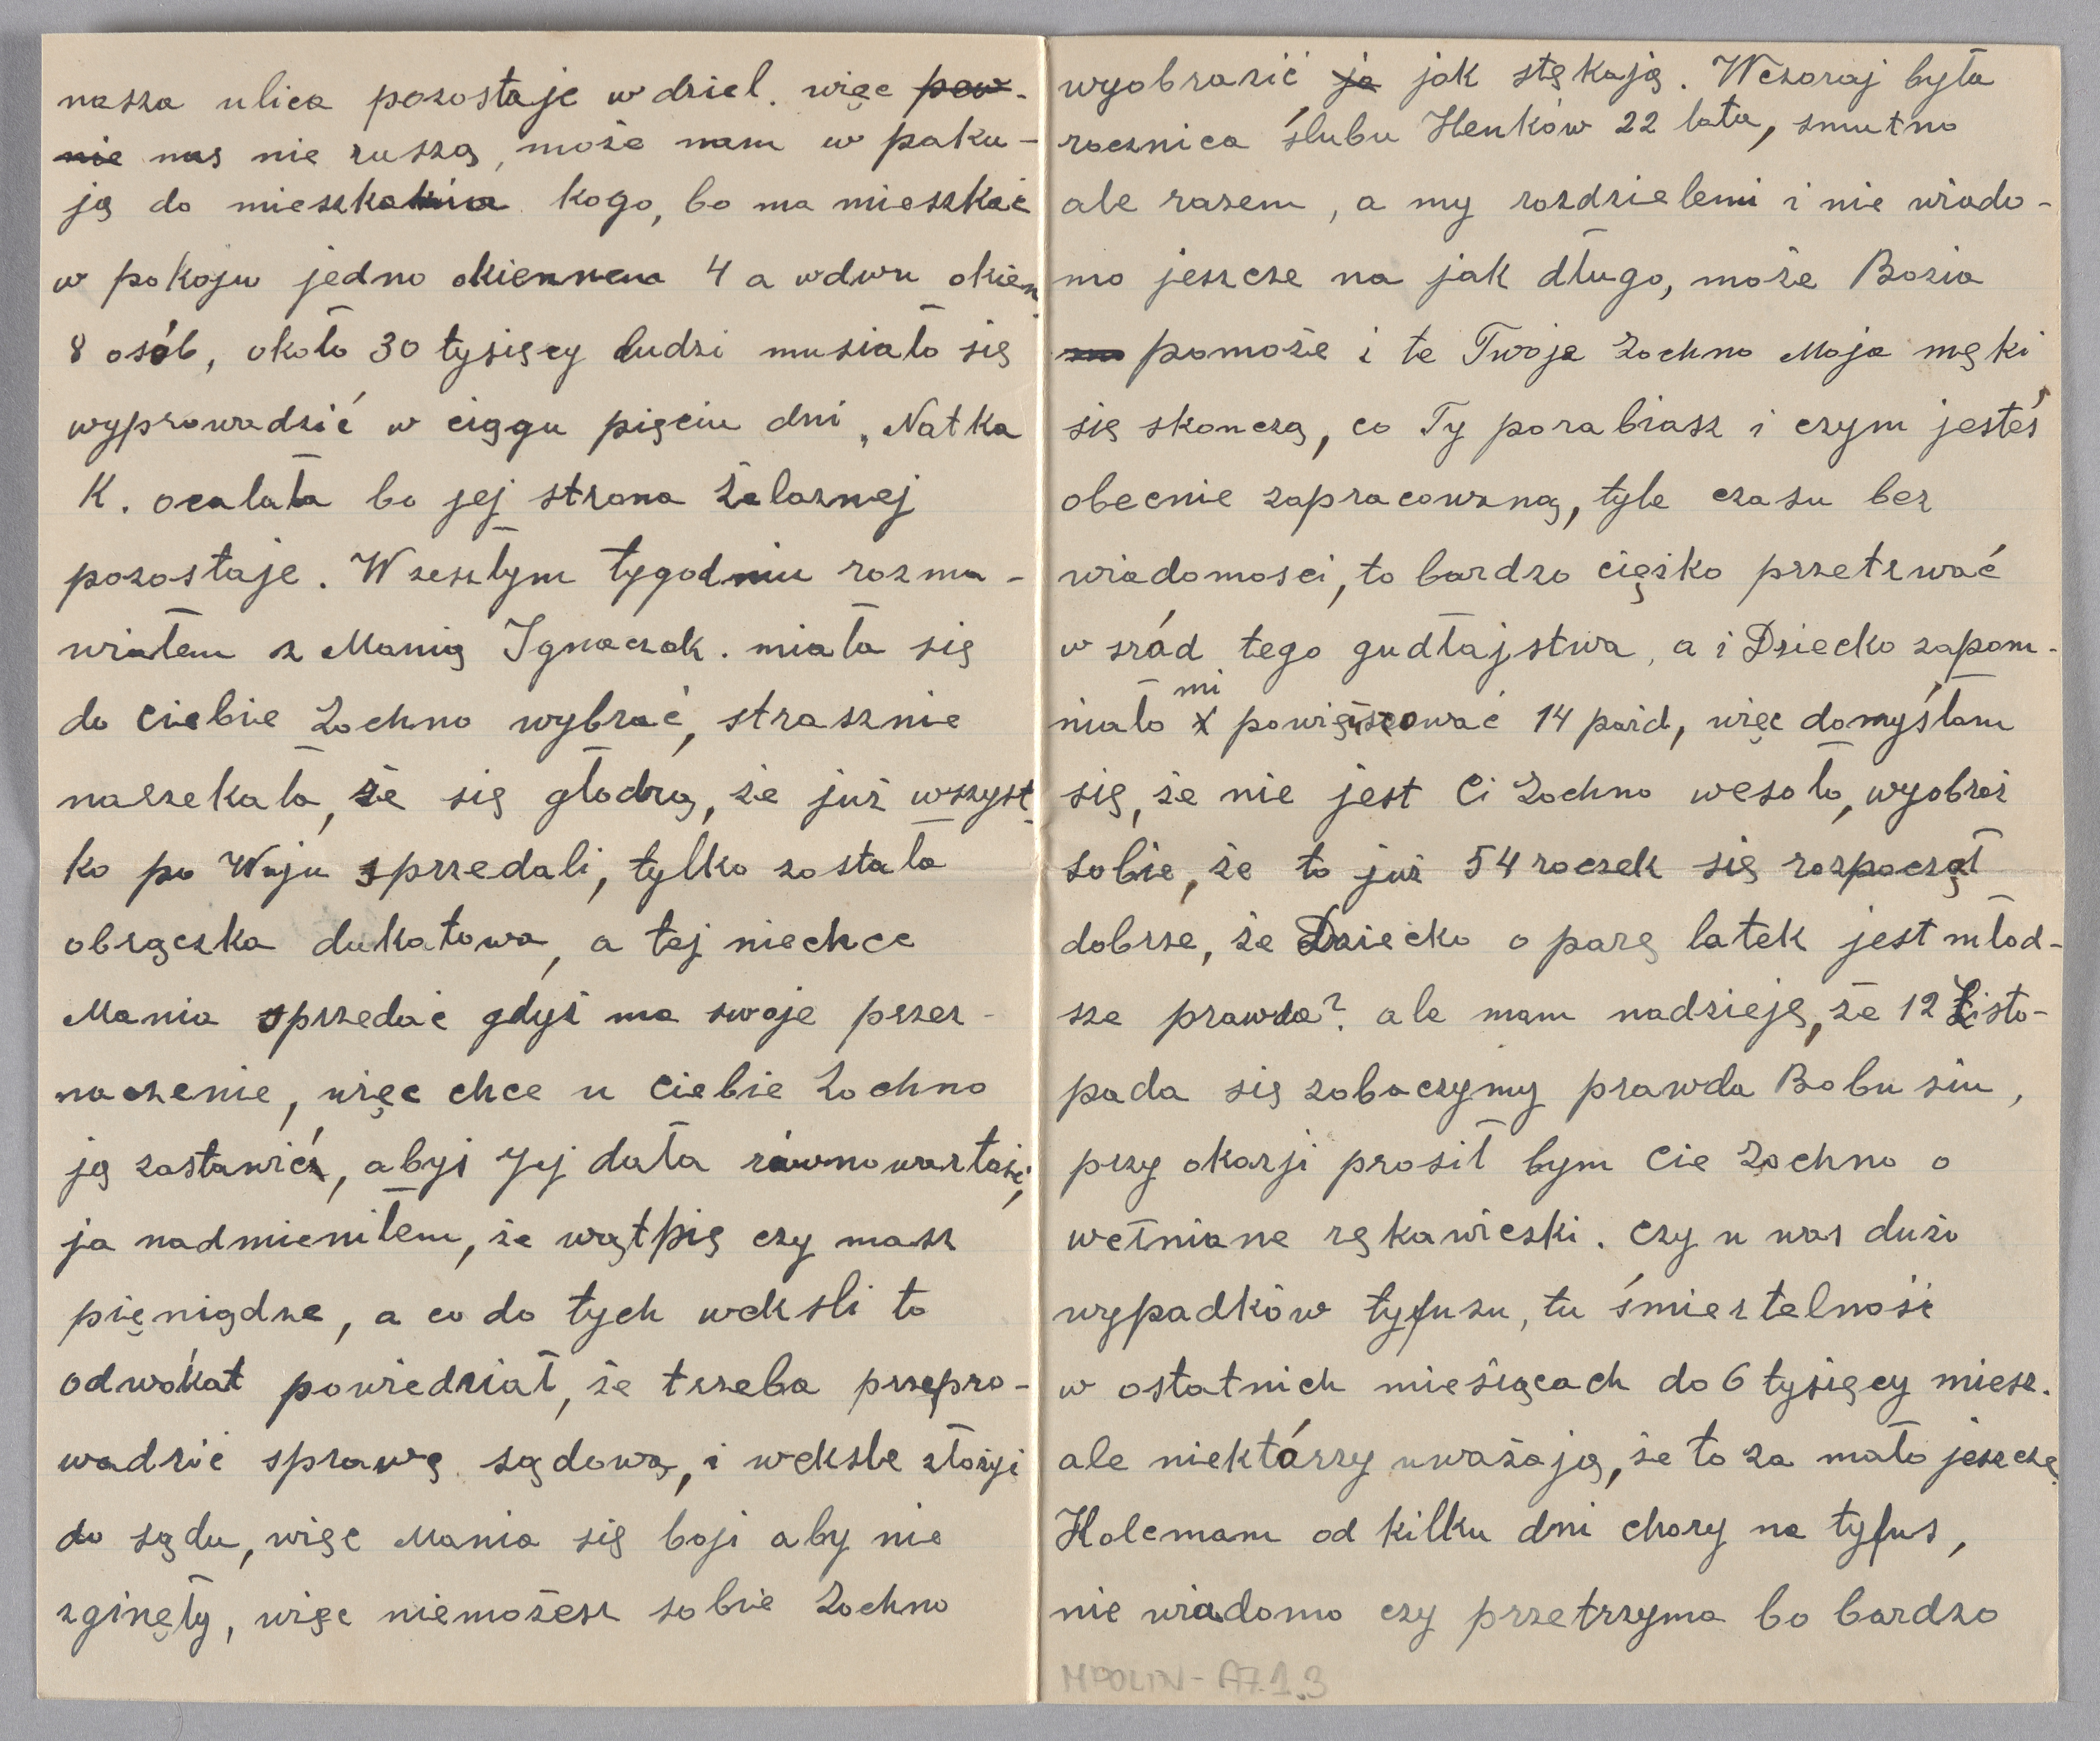 nasza ulica pozostaje w dziel. więc pew-
nie nas nie ruszą, może nam w paku-
ją do mieszkania kogo, bo ma mieszkać
w pokoju jedno okiennem 4 a w dwu okien.
8 osób, około 30 tysięcy ludzi musiało się
wyprowadzić w ciągu pięciu dni, Natka
K. ocalała bo jej strona Żelaznej
pozostaje. W zeszłym tygodniu rozma-
wiałem z Manią Ignaczak. miała się
do Ciebie Zochno wybrać, strasznie
narzekała, że się głodzą, że już wszyst-
ko po Wuju sprzedali, tylko została
obrączka dukatowa, a tej niechce
Mania sprzedać gdyż ma swoje przez-
naczenie, więc chce u Ciebie Zochno
ją zastawić, abyś Jej dała równowartość,
ja nadmieniłem, że wątpię czy masz
pięniądze, a co do tych weksli to
adwokat powiedział, że trzeba przepro-
wadzić sprawę sądową, i weksle złożyć
do sądu, więc Mania się boji aby nie
zginęły, więc niemożesz sobie Zochno
wyobrazić ja jak stękają. Wczoraj była
rocznica ślubu Henków 22 lata, smutno
ale razem, a my rozdzielemi i nie wiado-
mo jeszcze na jak długo, może Bozia
pomoże i te Twoje Zochno Moja męki
się skonczą, co Ty porabiasz i czym jesteś
obecnie zapracowaną, tyle czasu bez
wiadomosci, to bardzo ciężko przetrwać
w sród tego gudłajstwa, a i Dziecko zapom-
niało mi powięszować 14 paźd, więc domyślam
się, że nie jest Ci Zochno wesoło, wyobraź
sobie, że to już 54 roczek się rozpoczął
dobrze, że Dziecko o parę latek jest młod-
sze prawda? ale mam nadzieję, że 12 Listo-
pada się zobaczymy prawda Bobusiu,
przy okazji prosił bym Cie Zochno o
wełniane rękawiczki. Czy u was dużo
wypadków tyfusu, tu śmiertelność
w ostatnich mieśiącach do 6 tysięcy miesz.
ale niektórzy uważają, że to za mało jeszcze
Holcmam od kilku dni chory na tyfus,
nie wiadomo czy przetrzyma bo bardzo
MPOLIN-A7.1.3